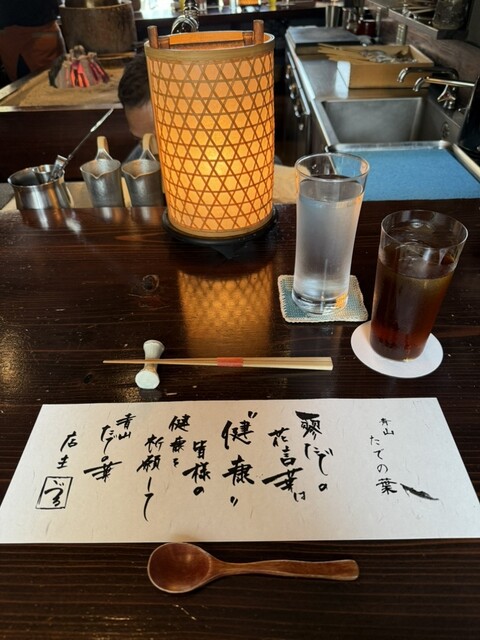 青山
たでの葉
蓼たでの
花言葉は
“健康”
皆様の
健康を
祈願して
青山
たでの葉
店主